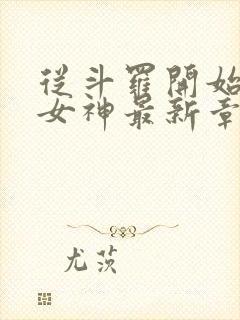 從斗羅開始
女神最新章
尤茨